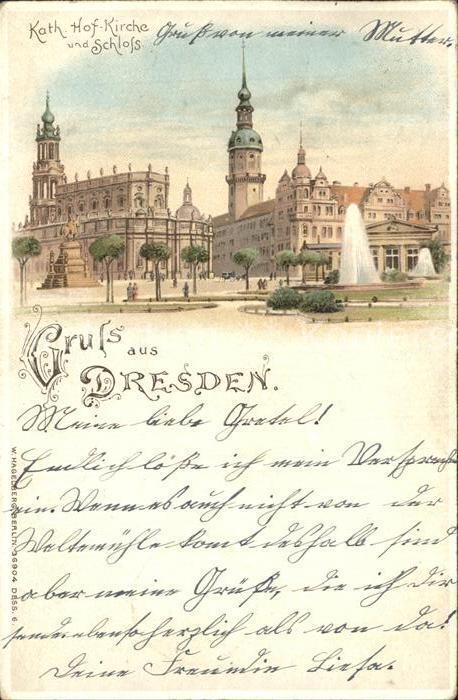 Kath. Hof-Kirche
und Schloss.
Gruß von meiner Mutter.
Gruss aus
DRESDEN.
Meine liebe Gretel!
Endlich löße ich mein Versprechen
ein. Wenn es auch nicht von der
Weltemühle komt deshalb sind
aber meine Grüße, die ich dir
sende ebenso herzlich als von da!
Deine Freundin Liesa.
W. HAGELBERG, BERLIN. 36904 DESS. 6.